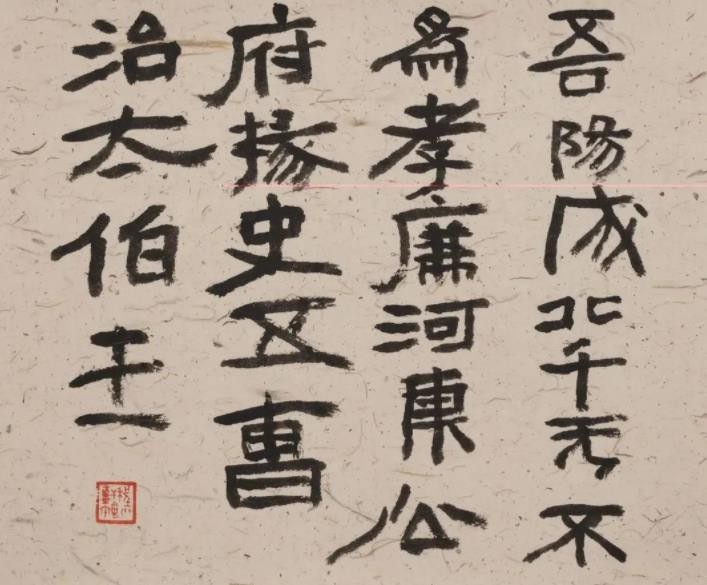 吾陽成北千无不
為孝廉河東公
府掾史五曹
治太伯王一